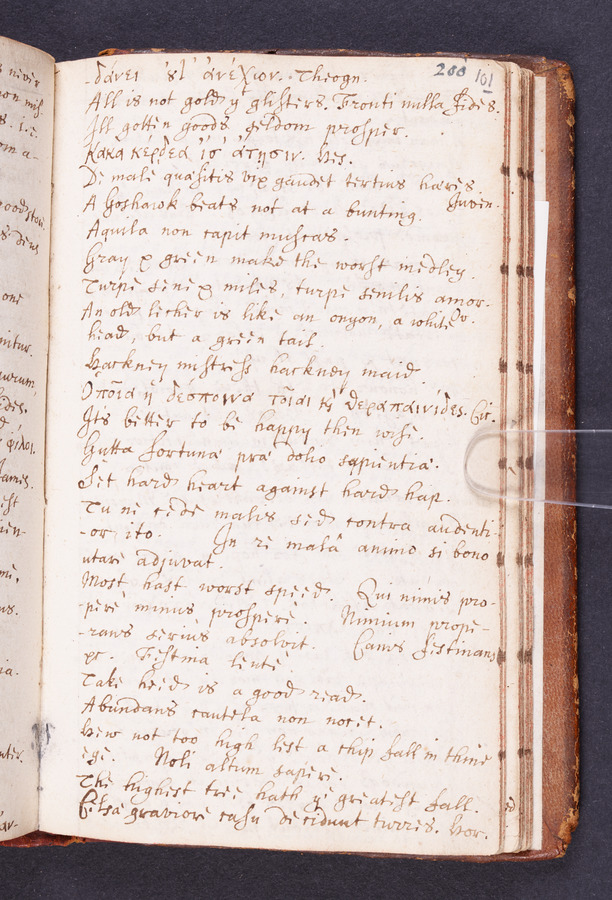 200 101
-δάνει ἀνέχιον. Theogn.
All is not gold yt glisters. Fronti nulla fides.
Ill gotten goods seldom prosper.
κακα κερδεα ἰσ' ἀτησιν. Hes.
De male quæsitis vix gaudet tertius hæres
Juven.
A Goshawk beats not at a bunting.
Aquila non capit muscas.
Gray & green make the worst medley.
Turpe senex miles, turpe senilis amor.
Ov.
An old lecher is like an onyon, a white
head, but a green tail.
Hackney mistress hackney maid.
Ὁποῖα ἡ δέσποινα τοῖαι κỳ θεραπαινίδες. Cic.
Its better to be happy then wise.
Gutta fortunæ præ dolio sapientiæ.
Set hard heart against hard hap.
Tu ne cede malis sed contra audenti-
-or ito. In re malâ animo si bono
utare adjuvat.
Most hast worst speed. Qui nimis pro-
-perè minus prosperè. Nimium prope-
-rans serius absolvit. Canis festinans
&c. Festina lente.
Take heed is a good read.
Abundans cautela non nocet.
Hew not too high lest a chip fall in thine
eye. Noli altum sapere.
The highest tree hath ye greatest fall.
Celsæ graviore casu decidunt turres. Hor.